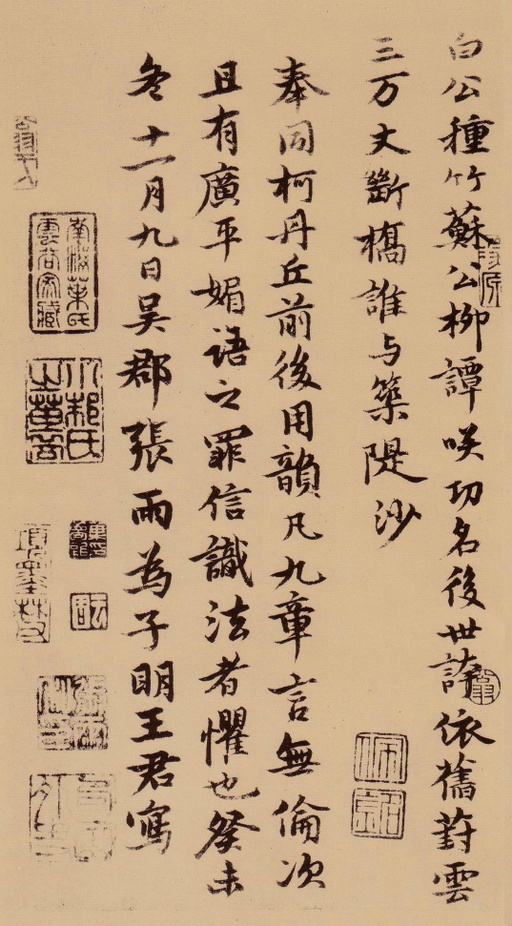 白公種竹蘇公柳譚咲功名後世誇依舊葑雲
三万丈斷橋誰与築隄沙
奉同柯丹丘前後用韻凡九章言無倫次
且有廣平媚語之罪信識法者懼也癸未
冬十一月九日吴郡張雨為子明王君寫
南海葉氏
雲谷家藏